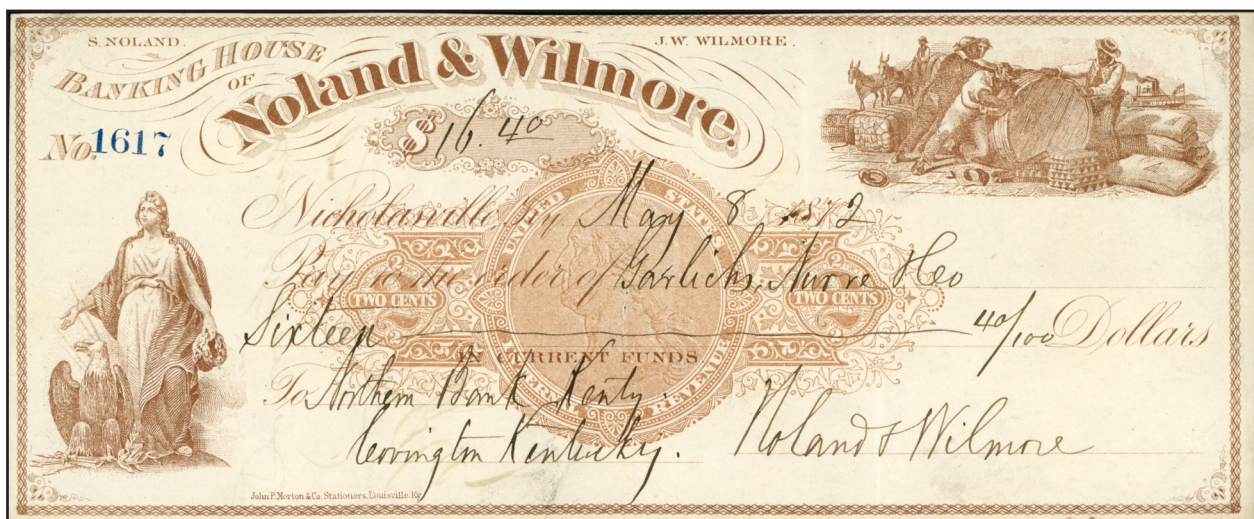 S. NOLAND.
J. W. WILMORE.
BANKING HOUSE
OF
Noland & Wilmore.
No. 1617
$ 16.40
Nicholasville, Ky May 8 1872
Pay to the order of Garlichs, Nurre & Co
TWO CENTS
TWO CENTS
UNITED STATES
INTERNAL REVENUE
Sixteen 40/100 Dollars
IN CURRENT FUNDS
To Northern Bank Kenty.
Covington Kentucky.
Noland & Wilmore
John P. Morton & Co. Stationers, Louisville, Ky.